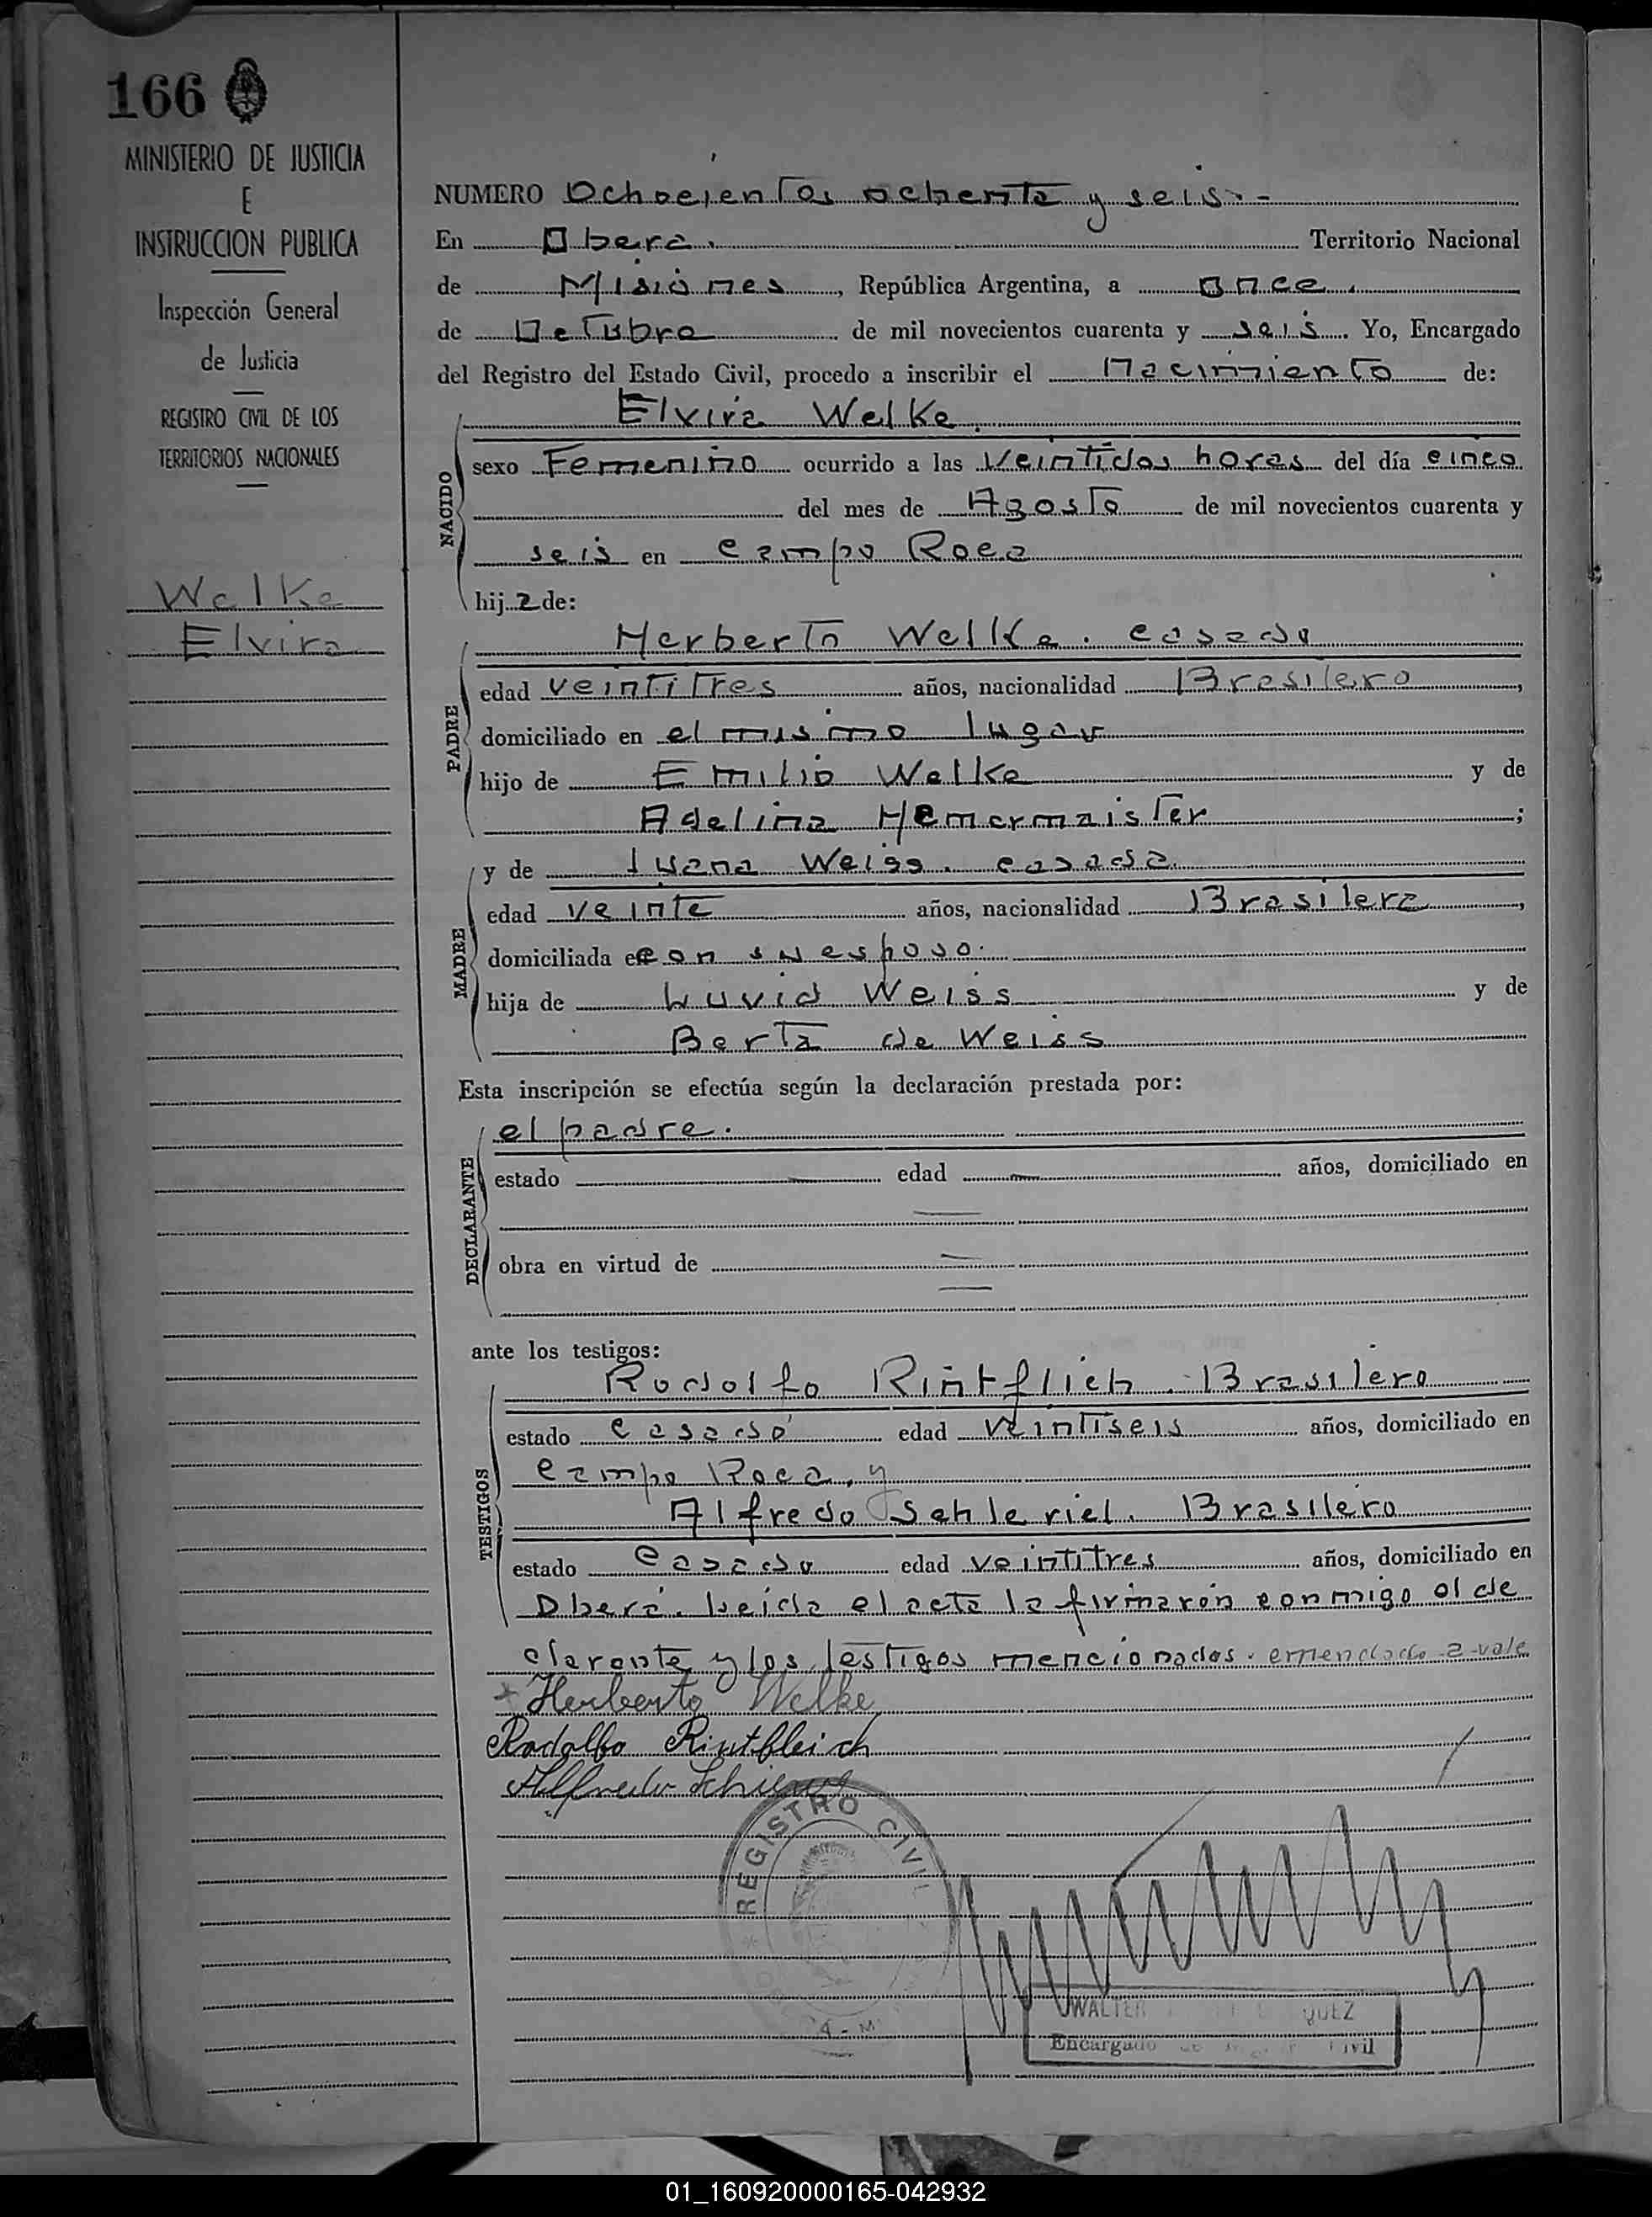 166
MINISTERIO DE JUSTICIA
E
INSTRUCCION PUBLICA
Inspección General
de Justicia
REGISTRO CIVIL DE LOS
TERRITORIOS NACIONALES
Welke
Elvira
NUMERO Ochocientos ochenta y seis.-
En Oberá. Territorio Nacional
de Misiones, República Argentina, a once.
de Octubre de mil novecientos cuarenta y seis. Yo, Encargado
del Registro del Estado Civil, procedo a inscribir el Nacimiento de:
NACIDO
Elvira Welke.
sexo Femenino ocurrido a las veintidos horas del día cinco
del mes de Agosto de mil novecientos cuarenta y
seis en campo Roca
hij a de:
PADRE
Herberto Welke. casado
edad veintitres años, nacionalidad Brasilero,
domiciliado en el mismo lugar
hijo de Emilio Welke y de
Adelina Hemermaister;
MADRE
y de Juana Weiss. casada.
edad veinte años, nacionalidad Brasilera,
domiciliada con su esposo.
hija de Luvid Weiss y de
Berta de Weiss
Esta inscripción se efectúa según la declaración prestada por:
DECLARANTE
el padre.
estado — edad — años, domiciliado en
—
obra en virtud de —
—
ante los testigos:
TESTIGOS
Rodolfo Rintflich. Brasilero
estado casado edad veintiseis años, domiciliado en
campo Roca, y
Alfredo Schleriel. Brasilero
estado casado edad veintitres años, domiciliado en
Oberá. Leida el acta la firmaron conmigo el de
clarante y los testigos mencionados. emendado-a-vale
+ Herberto Welke
Rodolfo Rintfleich
Alfredo
REGISTRO CIVIL
WALTER QUEZ
Encargado Civil
01_160920000165-042932